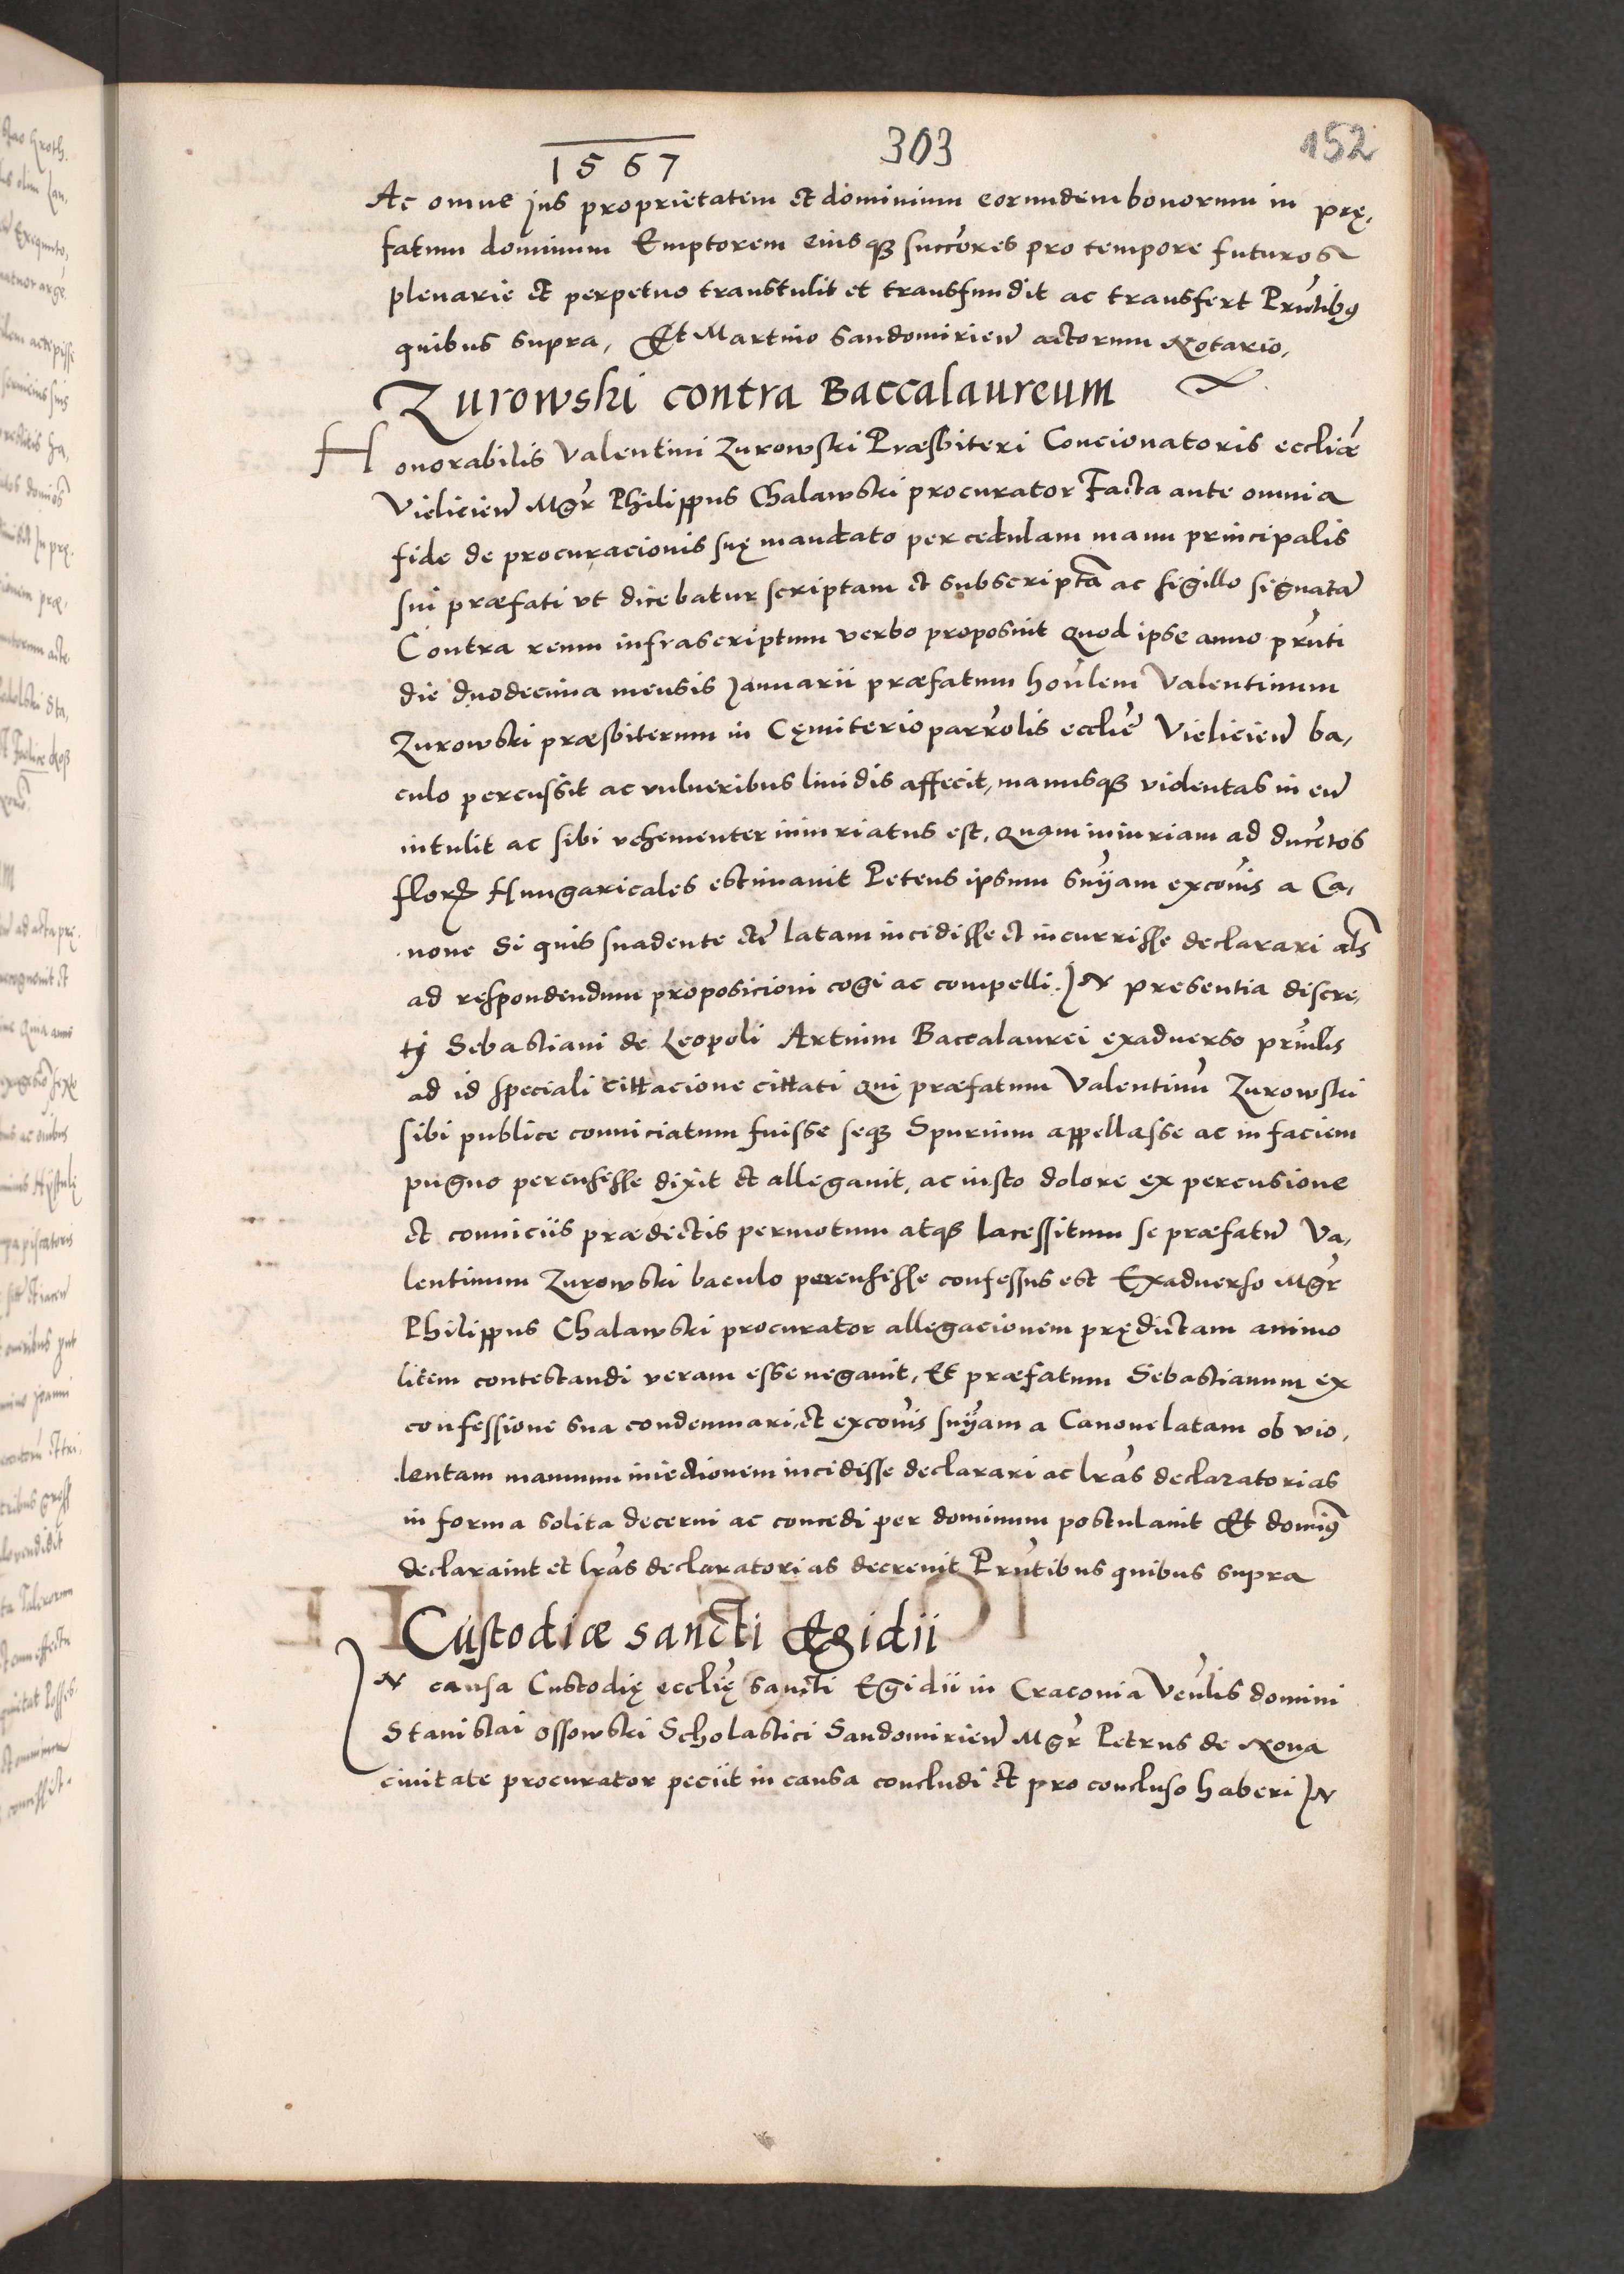 1567 303 152
Ac omne jus proprietatem et dominium eorundem bonorum in prę,
fatum dominum Emptorem eiusqȝ succ̃ores pro tempore futuros
plenarie et perpetuo transtulit et transfundit ac transfert Prñtibꝰ
quibus supra, Et Martino Sandomirieñ actorum Notario,
Zurowski contra Baccalaureum
Honorabilis Valentini Zurowski Præsbiteri Concionatoris eccliæ̃
Vielicieñ Mgr̃ Philippus Chalawski procurator Facta ante omnia
fide de procuracionis suę mandato per cedulam manu principalis
sui præfati vt dicebatur scriptam et subscriptã ac sigillo signatã
Contra reum infrascriptum verbo proposuit Quod ipse anno prñti
die duodecima mensis Januarii præfatum honlẽm Valentinum
Zurowski præsbiterum in Cęmiterio parrõlis ecclìẽ Vielicieñ ba,
culo percussit ac vulneribus liuidis affecit, manusqȝ violentas in eũ
intulit ac sibi vehementer iniuriatus est, Quam iniuriam ad ducẽtos
flor̃ Hungaricales estimauit Petens ipsum sn̄iam excõis a Ca,
none Si quis suadente etc̃ latam incidisse et incurrisse declarari als̃
ad respondendum proposicioni cogi ac compelli. JN presentia discre,
tj Sebastiani de Leopoli Artium Baccalaurei exaduerso prin̄lis
ad id speciali cittacione cittati Qui præfatum Valentinũ Zurowski
sibi publice conuiciatum fuisse seqȝ Spurium appellasse ac in faciem
pugno percusisse dixit et allegauit, ac iusto dolore ex percusione
et conuiciis prædictis permotum atqȝ lacessitum se præfatũ Va,
lentinum Zurowski baculo percusisse confessus est Exaduerso Mgr̃
Philippus Chalawski procurator allegacionem prędictam animo
litem contestandi veram esse negauit, Et præfatum Sebastianum ex
confessione sua condemnari, et excõis sn̄iam a Canone latam ob vio,
lentam manuum iniectionem incidisse declarari ac lr̃as declaratorias
in forma solita decerni ac concedi per dominum postulauit Et dominꝰ
declarauit et lr̃as declaratorias decreuit Prñtibus quibus supra
Custodiæ sancti Egidii
JN causa Custodię ecclię̃ Sancti Egidii in Cracouia Venlĩs domini
Stanislai Ossowski Scholastici Sandomirieñ Mgr̃ Petrus de Noua
ciuitate procurator peciit in causa concludi et pro concluso haberi JN